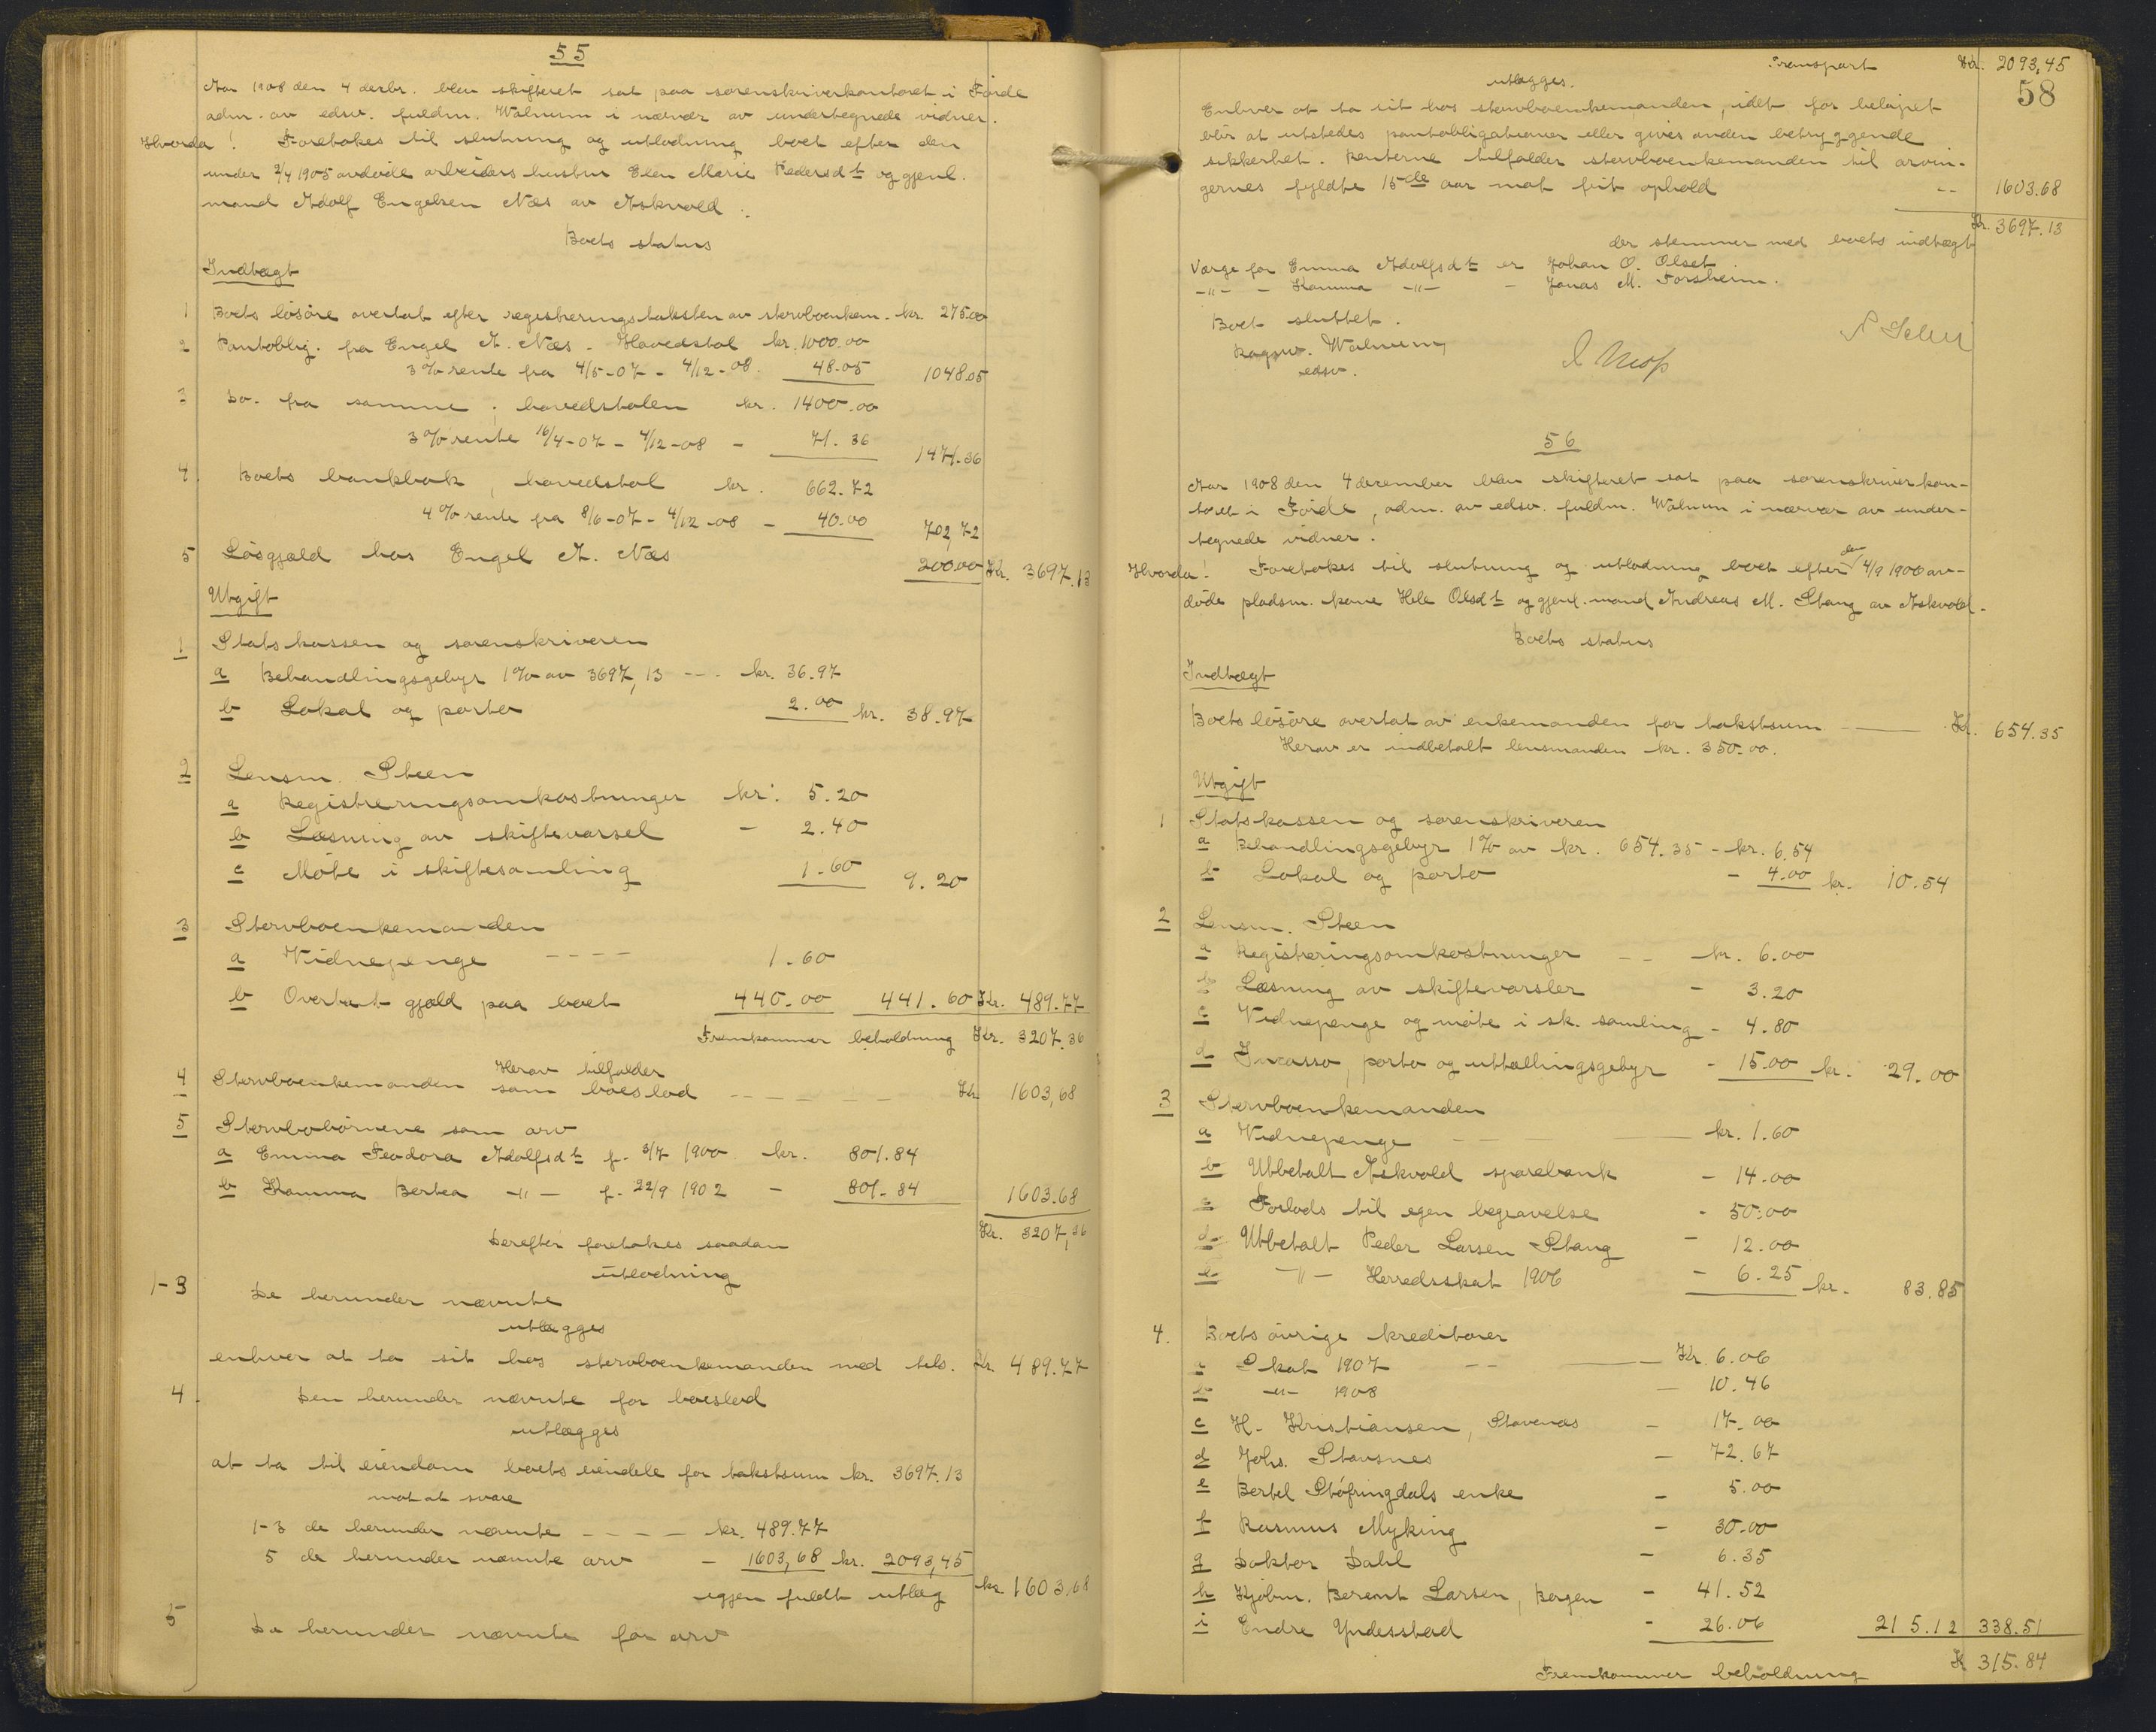 55
Aar 1908 den 4 decbr. blev skifteret sat paa sorenskriverkontoret i Förde
adm. av edsv. fuldm. Walnum i nærvær av undertegnede vidner.
Hvorda! Foretokes til slutning og utlodning boet efter den
under 2/4 1905 avdöde arbeiders hustru Elen Marie Pedersdt og gjenl.
mand Adolf Engelsen Næs av Askvold.
Boets status
Indtægt
1 Boets lösöre overtat efter registreringstaksten av stervboenkem. kr. 275.00
2 Pantoblig. fra Engel A. Næs. Hovedstol kr. 1000.00
3% rente fra 4/5-07 - 4/12-08. 48.05 1048.05
3 Do. fra samme, hovedstolen kr. 1400.00
3% rente 16/4-07 - 4/12-08 - 71.36 1471.36
4. Boets bankbok, hovedstol kr. 662.72
4% rente fra 8/6-07 - 4/12-08 - 40.00 702,72
5 Lösgjæld hos Engel A. Næs 200.00 Kr. 3697.13
Utgift
1 Statskassen og sorenskriveren
a Behandlingsgebyr 1% av 3697,13 --- kr. 36.97
b Lokal og porto 2.00 kr. 38.97
2 Lensm. Steen
a Registreringsomkostninger kr. 5.20
b Læsning av skiftevarsel - 2.40
c Möte i skiftesamling 1.60 9.20
3 Stervboenkemanden
a Vidnepenge ---- 1.60
b Overtat gjæld paa boet 440.00 441.60 Kr. 489.77
Fremkommer beholdning Kr. 3207.36
Herav tilfalder
4 Stervboenkemanden som boeslod ------ Kr 1603,68
5 Stervbobörnene som arv
a Emma Feodora Adolfsdt f. 3/7 1900 kr. 801.84
b Kamma Bertea -"- f. 22/9 1902 - 801.84 1603.68
Kr. 3207,36
Derefter foretokes saadan
utlodning
1-3 De herunder nævnte
utlægges
enhver at ta sit hos stervboenkemanden med tils. Kr. 489.77
4. Den herunder nævnte for boeslod
utlægges
at ta til eiendom boets eiendele for takstsum kr. 3697.13
mot at svare
1-3 de herunder nævnte ---- kr. 489.77
5 de herunder nævnte arv - 1603,68 kr. 2093,45
igjen fuldt utlæg kr. 1603.68
5 De herunder nævnte for arv
Transport Kr. 2093,45
58
utlægges.
Enhver at ta sit hos stervboenkemanden, idet for belöpet
blir at utstedes pantobligationer eller gives anden betryggende
sikkerhet. Renterne tilfalder stervboenkemanden til arvin-
gernes fyldte 15de aar mot frit ophold -- 1603.68
Kr. 3697.13
der stemmer med boets indtægt
Værge for Emma Adolfsdt er Johan O. Olset
-"- - Kamma -"- - Jonas M. Forsheim.
Boet sluttet.
Ragnv. Walnum,
edsv.
56
Aar 1908 den 4 december blev skifteret sat paa sorenskriverkon-
toret i Förde, adm. av edsv. fuldm. Walnum i nærvær av under-
tegnede vidner.
Hvorda! Foretokes til slutning og utlodning boet efter den 4/9 1900 av-
döde pladsm. kone Hele Olsdt og gjenl. mand Andreas M. Stang av Askvold.
Boets status
Indtægt
Boets lösöre overtat av enkemanden for takstsum --- Kr. 654.35
Herav er indbetalt lensmanden kr. 350.00.
Utgift
1 Statskassen og sorenskriveren
a Behandlingsgebyr 1% av kr. 654.35 - kr. 6.54
b Lokal og porto - 4.00 kr. 10.54
2 Lensm. Steen
a Registreringsomkostninger -- kr. 6.00
b Læsning av skiftevarsler - 3.20
c Vidnepenge og möte i sk. samling - 4.80
d Incasso, porto og uttællingsgebyr - 15.00 kr. 29.00
3 Stervboenkemanden
a Vidnepenge --- kr. 1.60
b Utbetalt Askvold sparebank - 14.00
c Forlods til egen begravelse - 50.00
d Utbetalt Peder Larsen Stang - 12.00
e -"- Herredsskat 1906 - 6.25 kr. 83.85
4. Boets övrige kreditorer
a Skat 1907 -- --- Kr. 6.06
b -"- 1908 - 10.46
c H. Kristiansen, Stavenæs - 17.00
d Johs. Stavsnes - 72.67
e Bertel Stöfringdals enke - 5.00
f Rasmus Myking - 30.00
g Doktor Dahl - 6.35
h Kjöbm. Berent Larsen, Bergen - 41.52
i Endre Yndesstad - 26.06 215.12 338.51
Fremkommer beholdning K 315.84